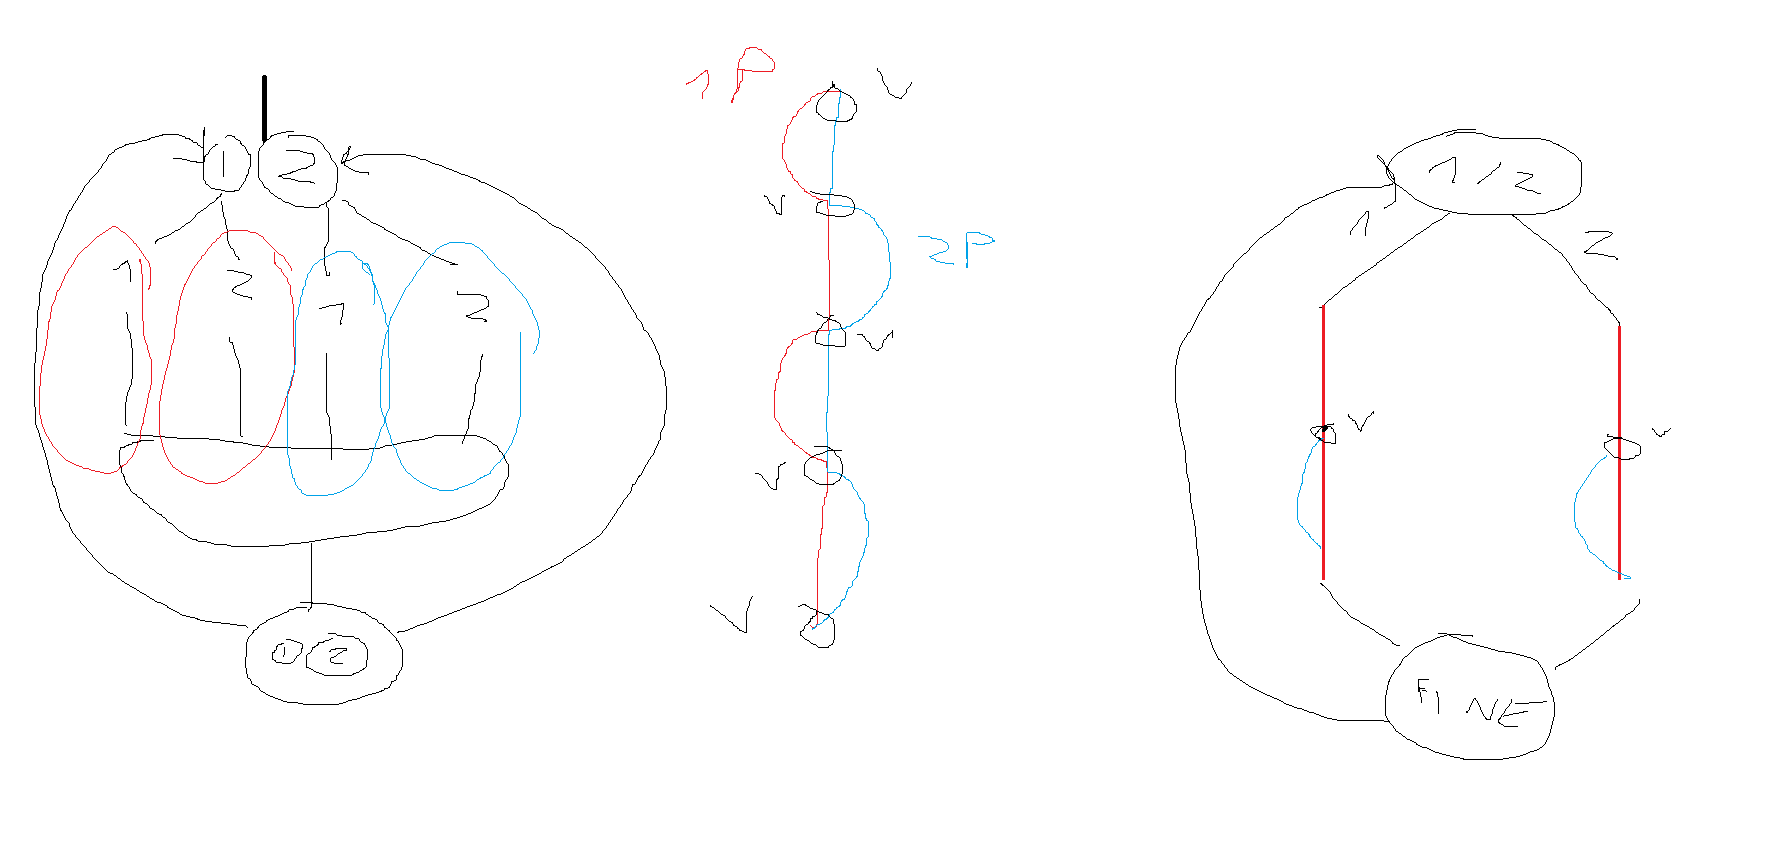 1 2
1 2 1 2
1 2
1P
V
V
2P
V
V
V
1/2
1 2
V V
FINE